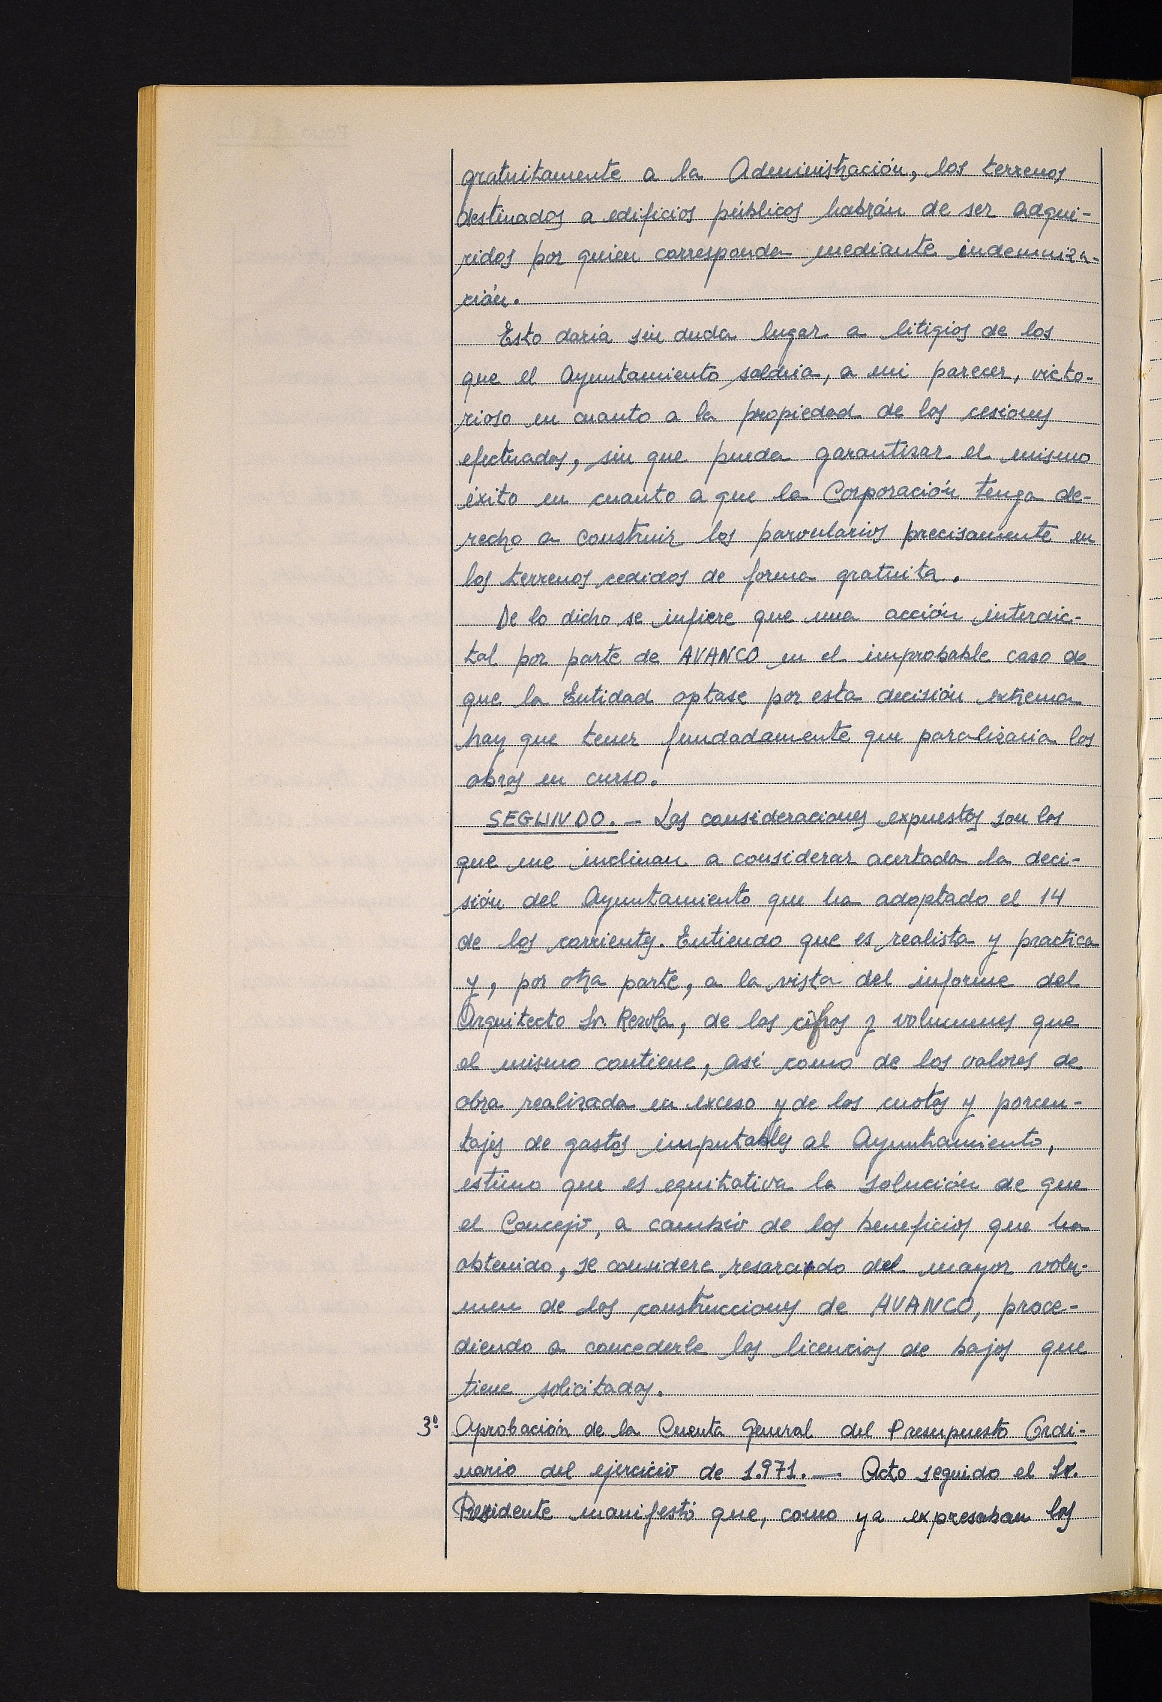 gratuitamente a la Administración, los terrenos
destinados a edificios públicos habrán de ser adqui-
ridos por quien corresponda mediante indemniza-
ción.
Esto daría sin duda lugar a litigios de los
que el Ayuntamiento saldría, a mi parecer, victo-
rioso en cuanto a la propiedad de las cesiones
efectuadas, sin que pueda garantizar el mismo
éxito en cuanto a que la Corporación tenga de-
recho a construir los parvularios precisamente en
los terrenos cedidos de forma gratuita.
De lo dicho se infiere que una acción interdic-
tal por parte de AVANCO en el improbable caso de
que la Entidad optase por esta decisión extrema
hay que temer fundadamente que paralizaria las
obras en curso.
SEGUNDO. — Las consideraciones expuestas son las
que me inclinan a considerar acertada la deci-
sión del Ayuntamiento que ha adoptado el 14
de los corrientes. Entiendo que es realista y practica
y, por otra parte, a la vista del informe del
Arquitecto Sr. Rezola, de las cifras y volumenes que
el mismo contiene, así como de los valores de
obra realizada en exceso y de las cuotas y porcen-
tajes de gastos imputables al Ayuntamiento,
estimo que es equitativa la solución de que
el Concejo, a cambio de los beneficios que ha
obtenido, se considere resarcido del mayor volu-
men de las construcciones de AVANCO, proce-
diendo a concederle las licencias de bajos que
tiene solicitadas.
3º Aprobación de la Cuenta General del Presupuesto Ordi-
nario del ejercicio de 1.971. — Acto seguido el Sr.
Presidente manifestó que, como ya expresaban los